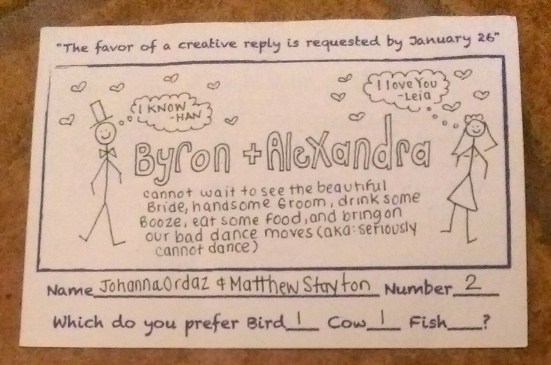 "The favor of a creative reply is requested by January 26"
I KNOW
-HAN
I love You
-Leia
Byron + Alexandra
cannot wait to see the beautiful
Bride, handsome Groom, drink some
Booze, eat some food, and bring on
our bad dance moves (aka: seriously
cannot dance)
Name Johanna Ordaz & Matthew Stayton Number 2
Which do you prefer Bird 1 Cow 1 Fish ?